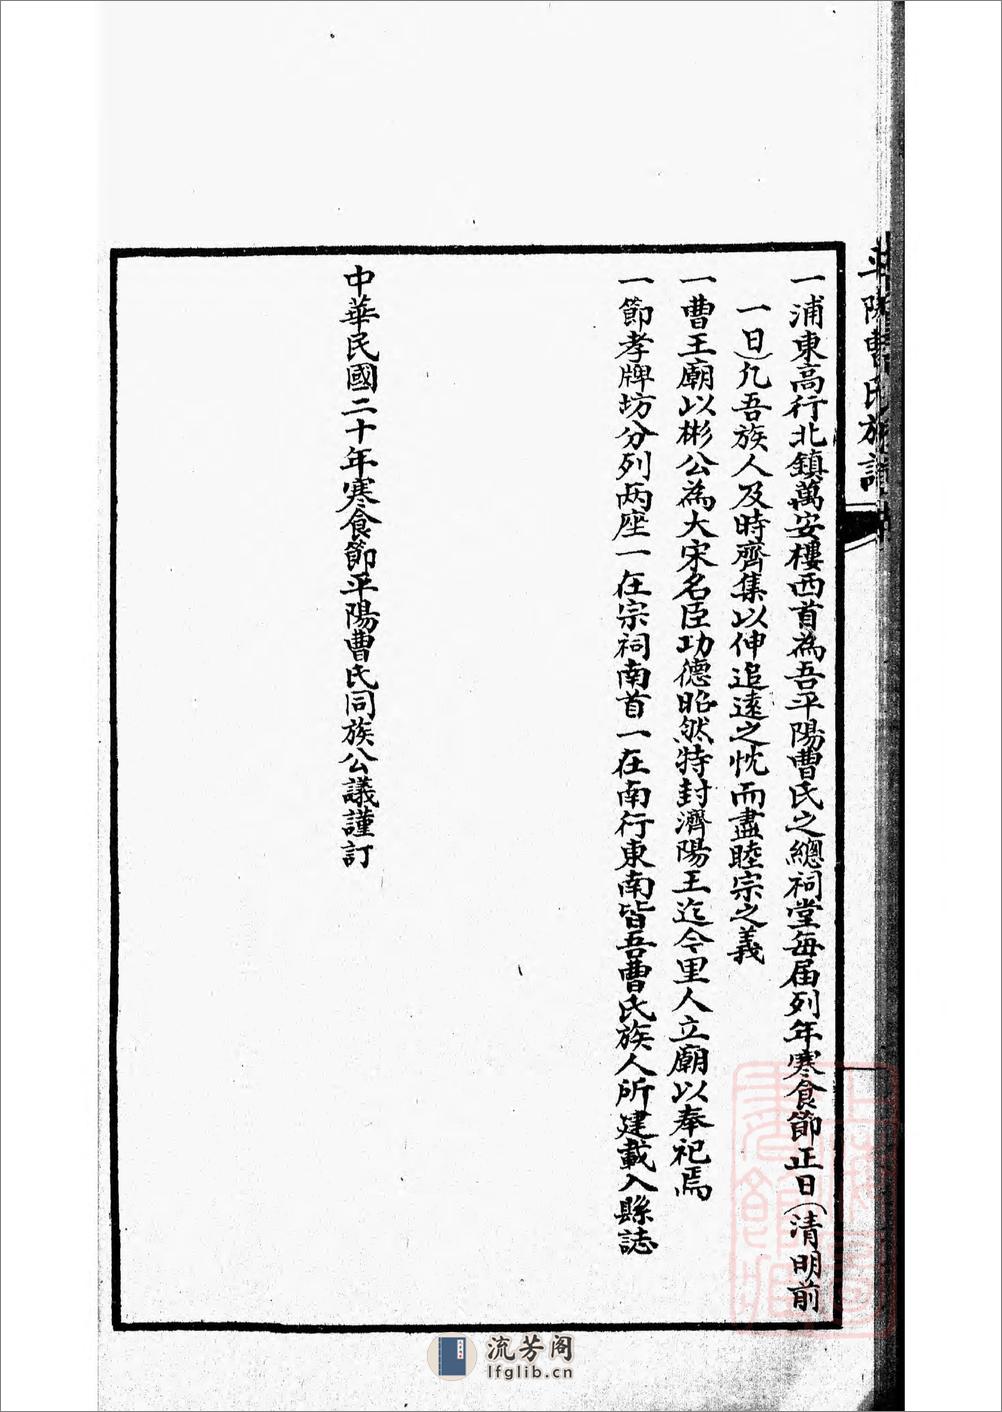 平陽曹氏族譜
一浦東高行北鎮萬安樓西首為吾平陽曹氏之總祠堂每届列年寒食節正日(清明前
一日)凣吾族人及時齊集以伸追遠之忱而盡睦宗之義
一曹王廟以彬公為大宋名臣功德昭然特封濟陽王迄今里人立廟以奉祀焉
一節孝牌坊分列两座一在宗祠南首一在南行東南皆吾曹氏族人所建載入縣誌
中華民國二十年寒食節平陽曹氏同族公議謹訂
流芳阁
lfglib.cn